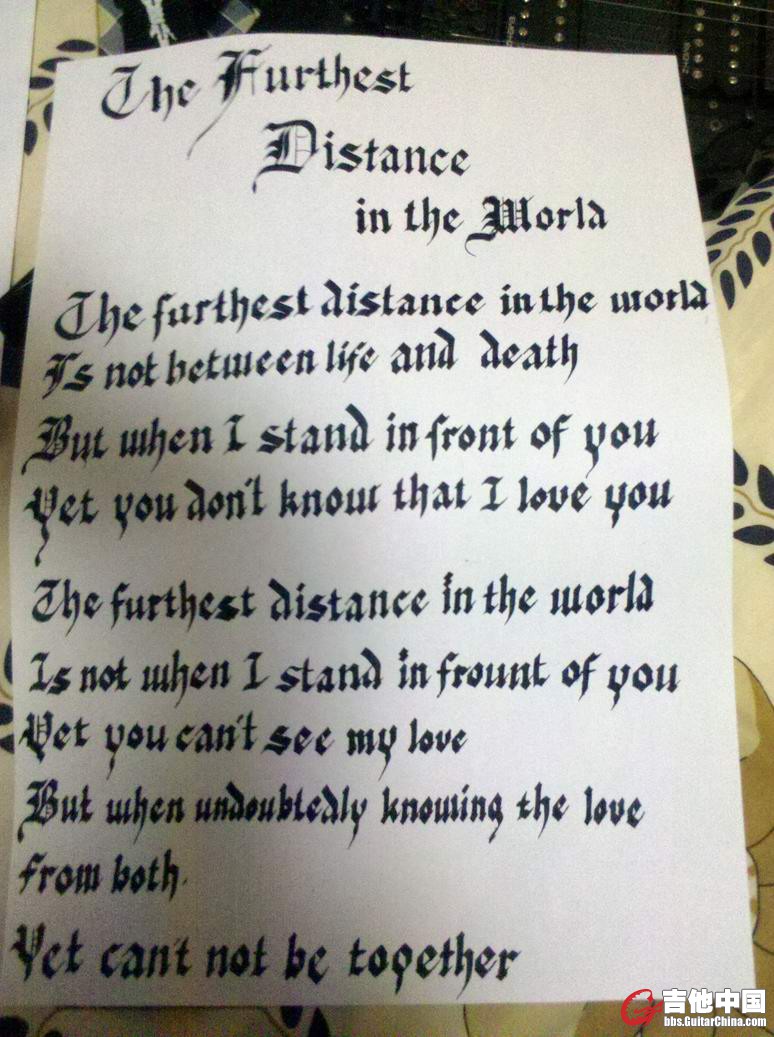 The Furthest
Distance
in the World
The furthest distance in the world
Is not between life and death
But when I stand in front of you
Yet you don't know that I love you
The furthest distance in the world
Is not when I stand in frount of you
Yet you can't see my love
But when undoubtedly knowing the love
from both.
Yet can't not be together
吉他中国
bbs.GuitarChina.com